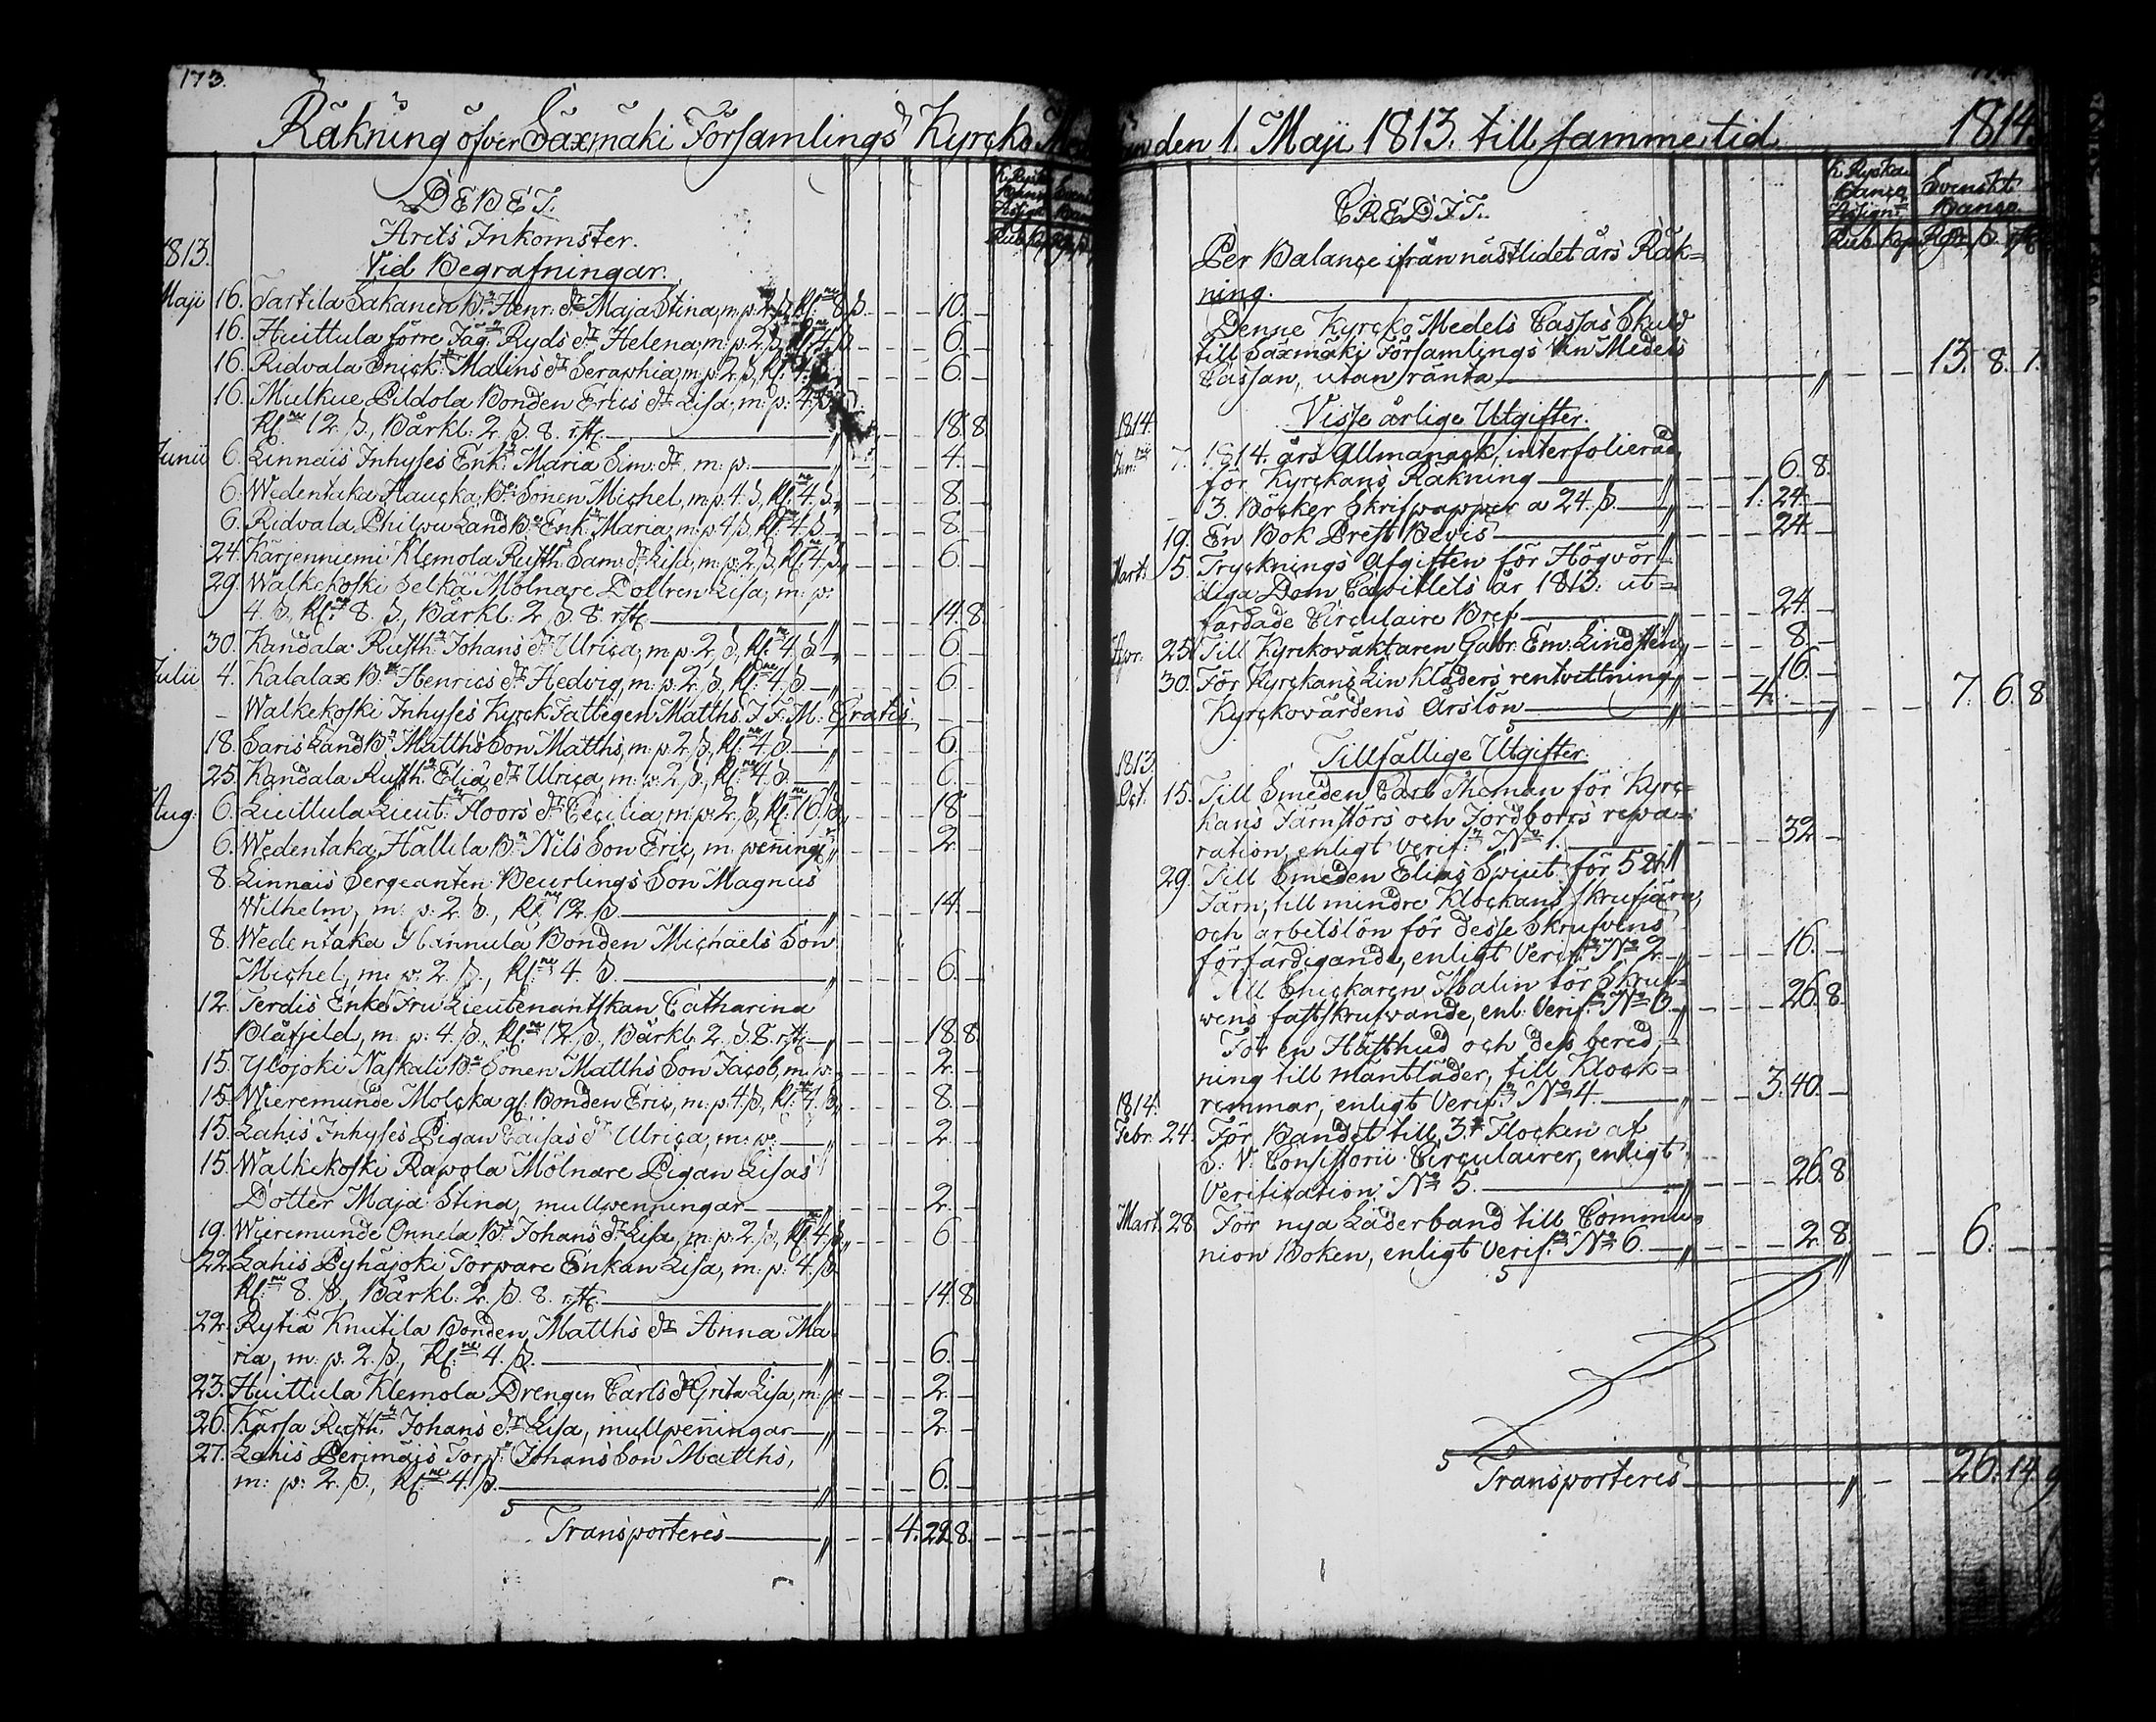 173.
Räkning öfver Säxmäki Församlings Kyrcko
DEBET.
Årets Inkomster.
1813. Vid Begrafningar.
Maji 16. Tartila Sakanen Bn Henr. dr Maja Stina, m: p: 2 ß, Kl:ne 8 ß. 10.
16. Huittula förre Jäg: Ryds dr Helena, m: p: 2 ß, Kl:ne 4 ß 6.
16. Ridvala Snick: Malins dr Seraphia, m: p: 2 ß, Kl: 4 ß 6.
16. Mulkue Pildola Bonden Erics dr Lisa, m: p: 4 ß
Kl:ne 12. ß., Bårkl: 2. ß. 8. rst. 18. 8.
Junii 6. Linnais Inhyses Enk: Maria Sim: dr, m: p: 4.
6. Wedentaka Haucka Bn Sonen Michel, m: p: 4. ß, Kl:ne 4. ß 8.
6. Ridvala Philpu Land Bn Enk: Maria, m: p: 4 ß, Kl:ne 4. ß 8.
24. Kärjenniemi Klemola Rusth: Sam: dr Lisa, m: p: 2 ß, Kl:ne 4. ß 6.
29. Walkekoski Selkä Mölnare Dottren Lisa, m: p:
4. ß, Kl:ne 8. ß., Bårkl: 2 ß. 8. rst. 14. 8.
30. Kandala Rusth: Johans dr Ulrica, m: p: 2, ß, Kl:ne 4. ß 6.
Julii 4. Kalalax Bn Henrics dr Hedvig, m: p: 2. ß, Kl:ne 4. ß 6.
- Walkekoski Inhyses Kyrck Fattigen Matths. J. F. M: Gratis.
18. Saris Land Bn Matths Son Matths, m: p: 2. ß, Kl:ne 4 ß. 6.
25. Kandala Rusth: Eliæ dr Ulrica, m: p: 2 ß., Kl:ne 4 ß. 6.
Aug: 6. Liuttula Lieut: Floors dr Cecilia, m: p: 2. ß, Kl:ne 16. ß 18.
6. Wedentaka Hällila Bn Nils Son Eric, m. peninge 2.
8. Linnais Sergeanten Beurlings Son Magnus
Wilhelm, m: p: 2. ß., Kl:ne 12. ß. 14.
8. Wedentaka Hannula Bonden Michaels Son
Michel, m: p: 2. ß., Kl:ne 4. ß. 6.
12. Terdis Enke Fru Lieutenantskan Catharina
Blåfjeld, m: p: 4. ß., Kl:ne 12. ß, Bårkl: 2. ß. 8. rst. 18. 8.
15. Ylöjoki Naskali Bn Sonen Matths Son Jacob, m: p: 2.
15. Wieremunde Molcka gl. Bonden Eric, m: p: 4 ß, Kl:ne 4. ß 8.
15. Lahis Inhyses Pigan Caisas dr Ulrica, m: p: 2.
15. Walkekoski Rapola Mölnare Pigan Lisas
Dotter Maja Stina, mullpenningar 2.
19. Wieremunde Onnela Bn Johans dr Lisa, m: p: 2. ß, Kl:ne 4. ß 6.
22. Lahis Pyhäjoki Torpare Enkan Lisa, m: p: 4. ß
Kl:ne 8. ß., Bårkl: 2. ß. 8. rst. 14. 8.
22. Rytiä Knutila Bonden Matths dr Anna Ma
ria, m: p: 2. ß., Kl:ne 4. ß. 6.
23. Huittula Klemola Drengen Carls dr Greta Lisa, m: p: 2.
26. Kärsa Rusth: Johans dr Lisa, mullpeningar 2.
27. Lahis Perimäis Torp: Johans Son Matths,
m: p: 2. ß., Kl:ne 4. ß. 6.
Transporteres 4. 22. 8.
den 1. Maji 1813. till samme tid 1814.
CREDIT.
K. Ryska Banco Assign: Svenskt Banco
Rub. Kop. Rdr. ß. rst.
Per Balance ifrån nästlidet års Räk=
ning.
Denne Kyrcko Medels Cassas Skuld
till Säxmäki Församlings Vin Medels
Cassan, utan ränta 13. 8. 1.
1814. Visse årlige Utgifter.
Jan: 7. 1814. års Allmanack, interfolierad,
för Kyrckans Räkning 6. 8.
3. Böcker Skrifpapper a 24. ß. 1. 24.
19. En Bok Prest Bevis 24.
Mart: 5. Trycknings Afgiften för Högvör=
diga Dom Capitlets år 1813. ut=
färdade Circulaire Bref 24.
Apr: 25. Till Kyrckoväktaren Gabr: Em: Lindsten 8.
30. För Kyrckans Lin Kläders rentvettning 16.
Kyrckovärdens Årslön 4. 7. 6. 8.
1813. Tillfällige Utgifter.
Oct: 15. Till Smeden Carl Thoman för Kyrc=
kans Järnstörs och Jordborrs repa=
ration, enligt Verif:n No 1. 32.
29. Till Smeden Elias Sprut för 5
Järn, till mindre Klockans skrufjärn,
och arbetslön för desse Skrufvens
förfärdigande, enligt Verif:n No 2. 16.
Till Snickaren Malin för Skruf=
vens fastskrufvande, enl: Verif:n No 3. 26. 8.
För en Hästhud och dess bered=
ning till mantläder, till Klock=
remmar, enligt Verif:n No 4. 3. 40.
1814.
Febr. 24. För Bandet till 3. Flocken af
S. V. Consistorii Circulairer, enligt
Verification No 5. 26. 8.
Mart. 28. För nya Läderband till Commu=
nion Boken, enligt Verif:n No 6. 2. 8. 6.
Transporteres 26. 14. 9